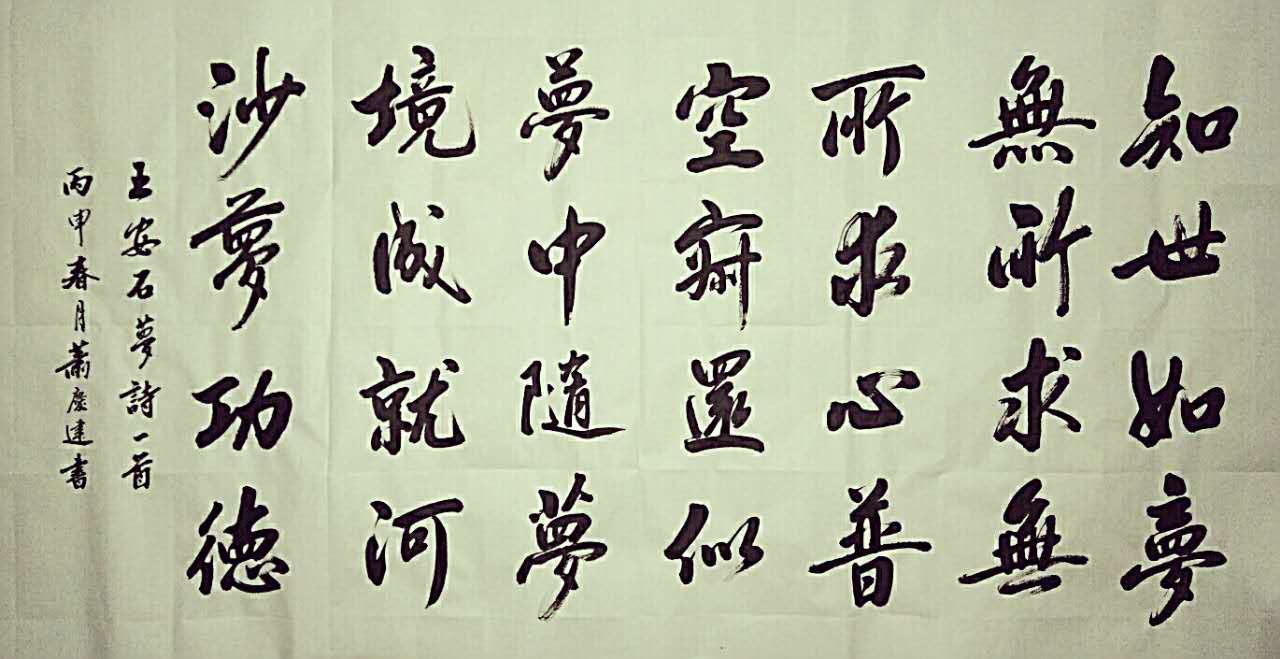 知世如夢
無所求無
所求心普
空寂還似
夢中隨夢
境成就河
沙夢功德
王安石夢詩一首
丙申春月蕭慶建書